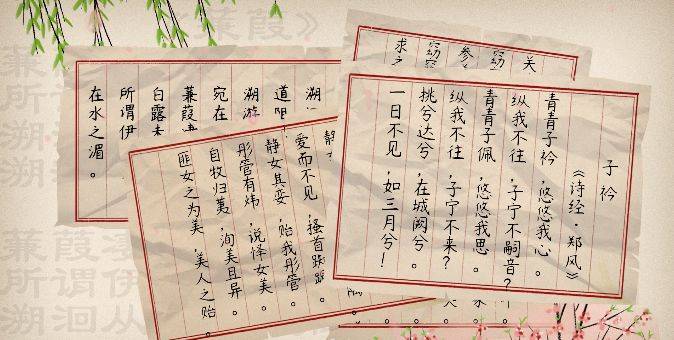 子衿
《诗经·郑风》
青青子衿，悠悠我心。
纵我不往，子宁不嗣音？
青青子佩，悠悠我思。
纵我不往，子宁不来？
挑兮达兮，在城阙兮。
一日不见，如三月兮！
关
窈
参
窈
求之
静
爱而不见，搔首踟蹰。
静女其娈，贻我彤管。
彤管有炜，说怿女美。
自牧归荑，洵美且异。
匪女之为美，美人之贻。
溯
道阻
溯游
宛在
蒹葭
白露未
所谓伊
在水之湄。
《蒹葭》
所谓伊
溯洄从